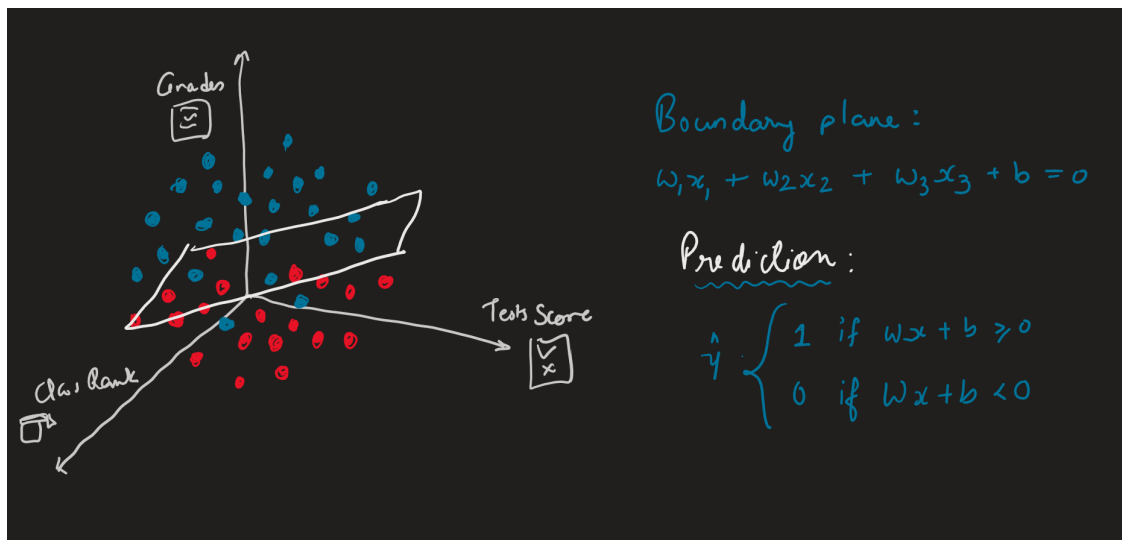 Grades
Tests Score
Class Rank
Boundary plane:
w₁x₁ + w2x2 + w₃x₃ + b = 0
Prediction:
ŷ { 1 if wx + b ≥ 0
0 if Wx+b < 0